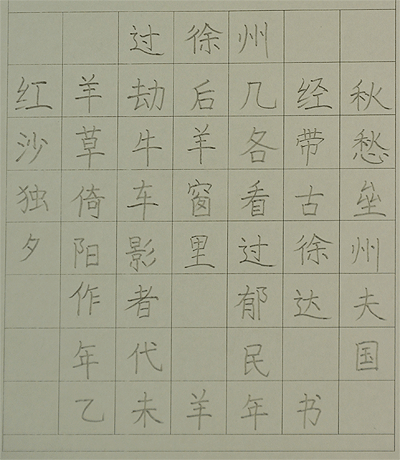 过徐州
红羊劫后几经秋
沙草牛羊各带愁
独倚车窗看古垒
夕阳影里过徐州
作者 郁达夫
年代 民国
乙未羊年书